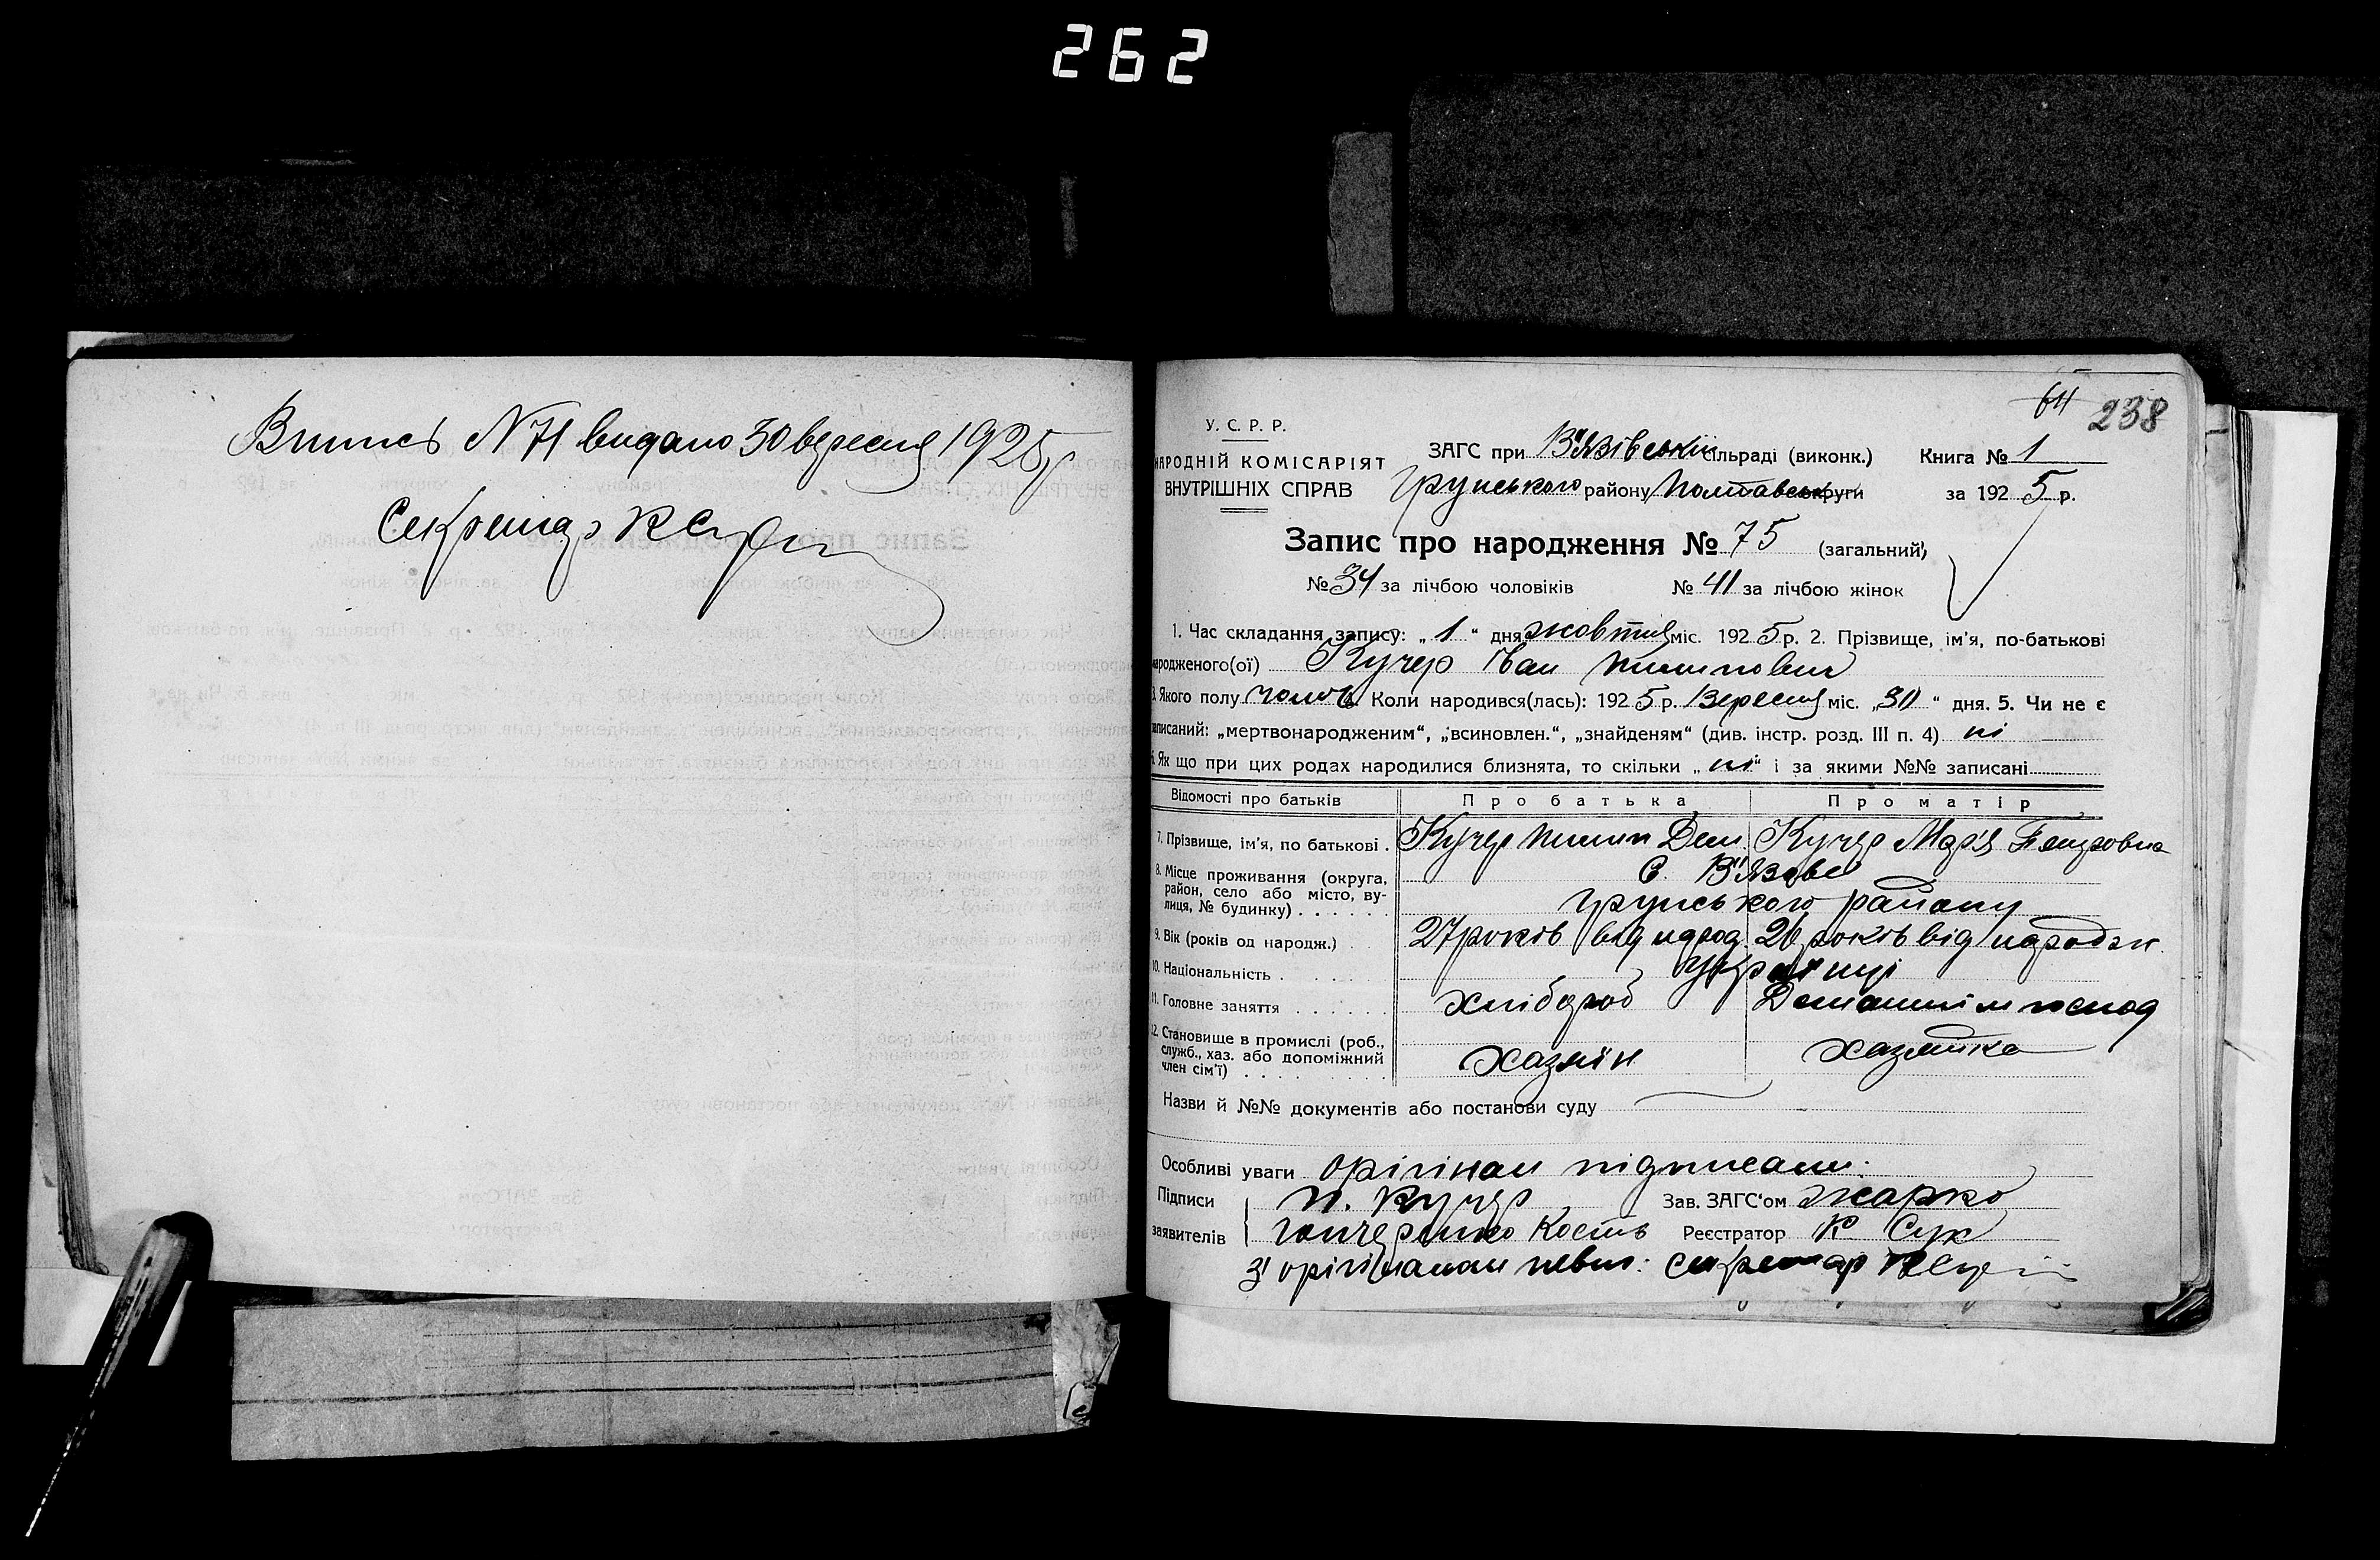 262
Впись N 71 видано 30 вересня 1925 р
Секретар К Сук
238
У. С. Р. Р.
НАРОДНІЙ КОМІСАРІЯТ
ВНУТРІШНІХ СПРАВ
ЗАГС при В'язівській сільраді (виконк.) Книга № 1
Грунського району Полтавськ округи за 1925 р.
Запис про народження № 75 (загальний)
№ 34 за лічбою чоловіків № 41 за лічбою жінок
1. Час складання запису: „ 1 “ дня жовтня міс. 1925 р. 2. Прізвище, ім'я, по-батькові
народженого(ої) Кучер Іван Пилипович
3. Якого полу чолов. Коли народився(лась): 1925 р. Вересня міс. „30 “ дня. 5. Чи не є
записаний: „мертвонародженим“, „всиновлен.“, „знайденям“ (див. інстр. розд. III п. 4) ні
6. Як що при цих родах народилися близнята, то скільки „ ні “ і за якими №№ записані
Відомості про батьків Про батька Про матір
7. Прізвище, ім'я, по батькові . Кучер Пилип Дем. Кучер Мар'я Петровна
8. Місце проживання (округа, С. В'язове
район, село або місто, ву-
лиця, № будинку) . . . . . . Грунського району
9. Вік (років од народж.) . . 27 років від народ. 26 років від народж
10. Національність . . . . . . Українці
11. Головне заняття . . . . . . хлібороб Домашнім господ
12. Становище в промислі (роб.,
служб., хаз. або допоміжний хазяїн хазяйка
член сім'ї) . . . . . . . .
Назви й №№ документів або постанови суду
Особливі уваги орігінал підписали:
Підписи П. Кучер Зав. ЗАГС'ом Жарко
заявителів Гончеренко Кость Реєстратор К Сук
З орігіналом певно: секретар К Сук